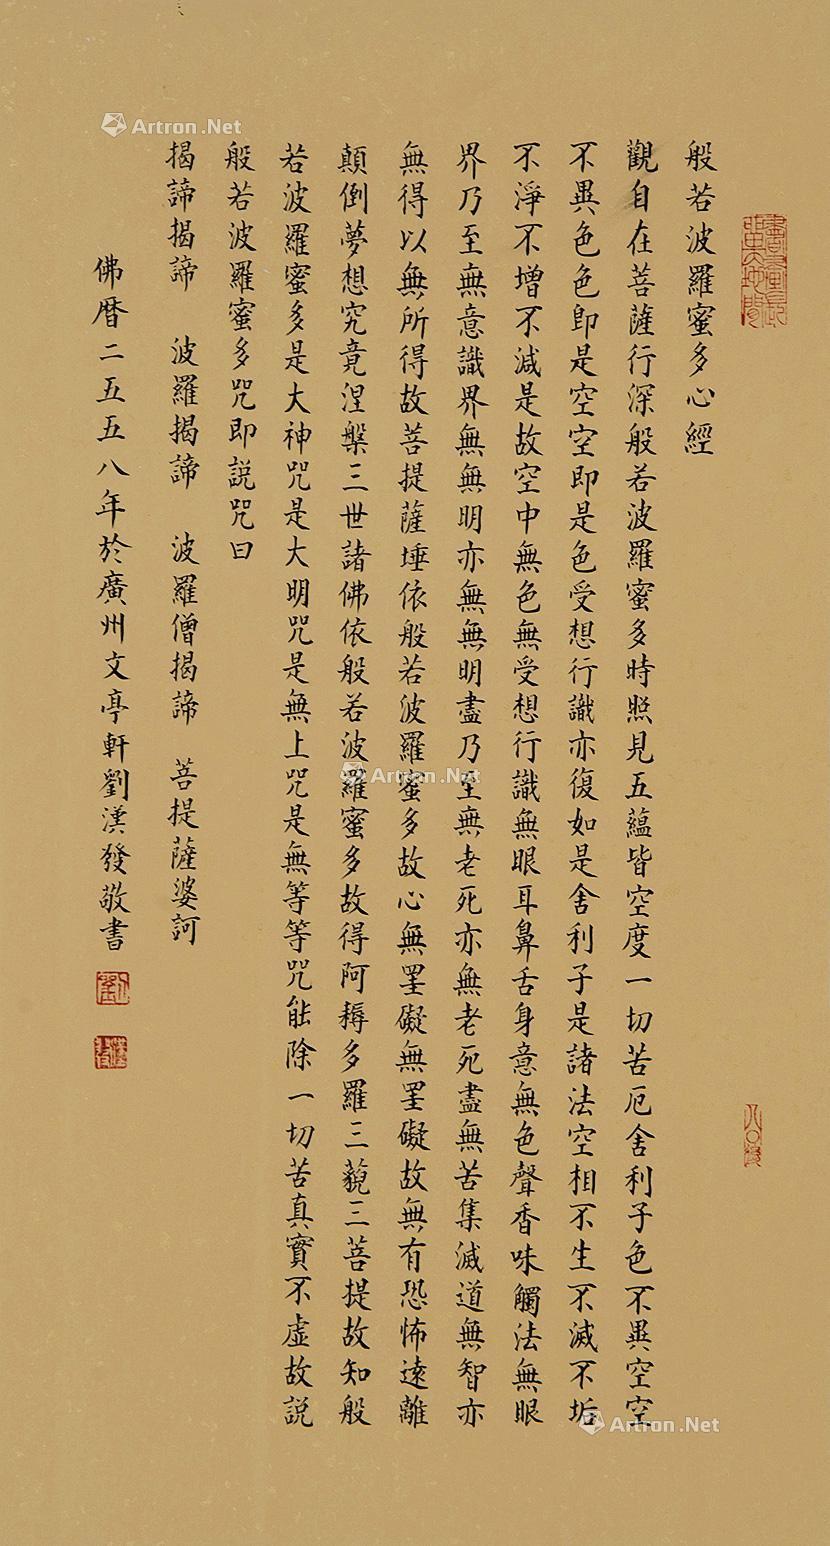 般若波羅蜜多心經
觀自在菩薩行深般若波羅蜜多時照見五蘊皆空度一切苦厄舍利子色不異空空
不異色色即是空空即是色受想行識亦復如是舍利子是諸法空相不生不滅不垢
不淨不增不減是故空中無色無受想行識無眼耳鼻舌身意無色聲香味觸法無眼
界乃至無意識界無無明亦無無明盡乃至無老死亦無老死盡無苦集滅道無智亦
無得以無所得故菩提薩埵依般若波羅蜜多故心無罣礙無罣礙故無有恐怖遠離
顛倒夢想究竟涅槃三世諸佛依般若波羅蜜多故得阿耨多羅三藐三菩提故知般
若波羅蜜多是大神咒是大明咒是無上咒是無等等咒能除一切苦真實不虛故説
般若波羅蜜多咒即説咒曰
揭諦揭諦 波羅揭諦 波羅僧揭諦 菩提薩婆訶
佛曆二五五八年於廣州文亭軒劉漢發敬書
Artron.Net
Artron.Net
Artron.Net